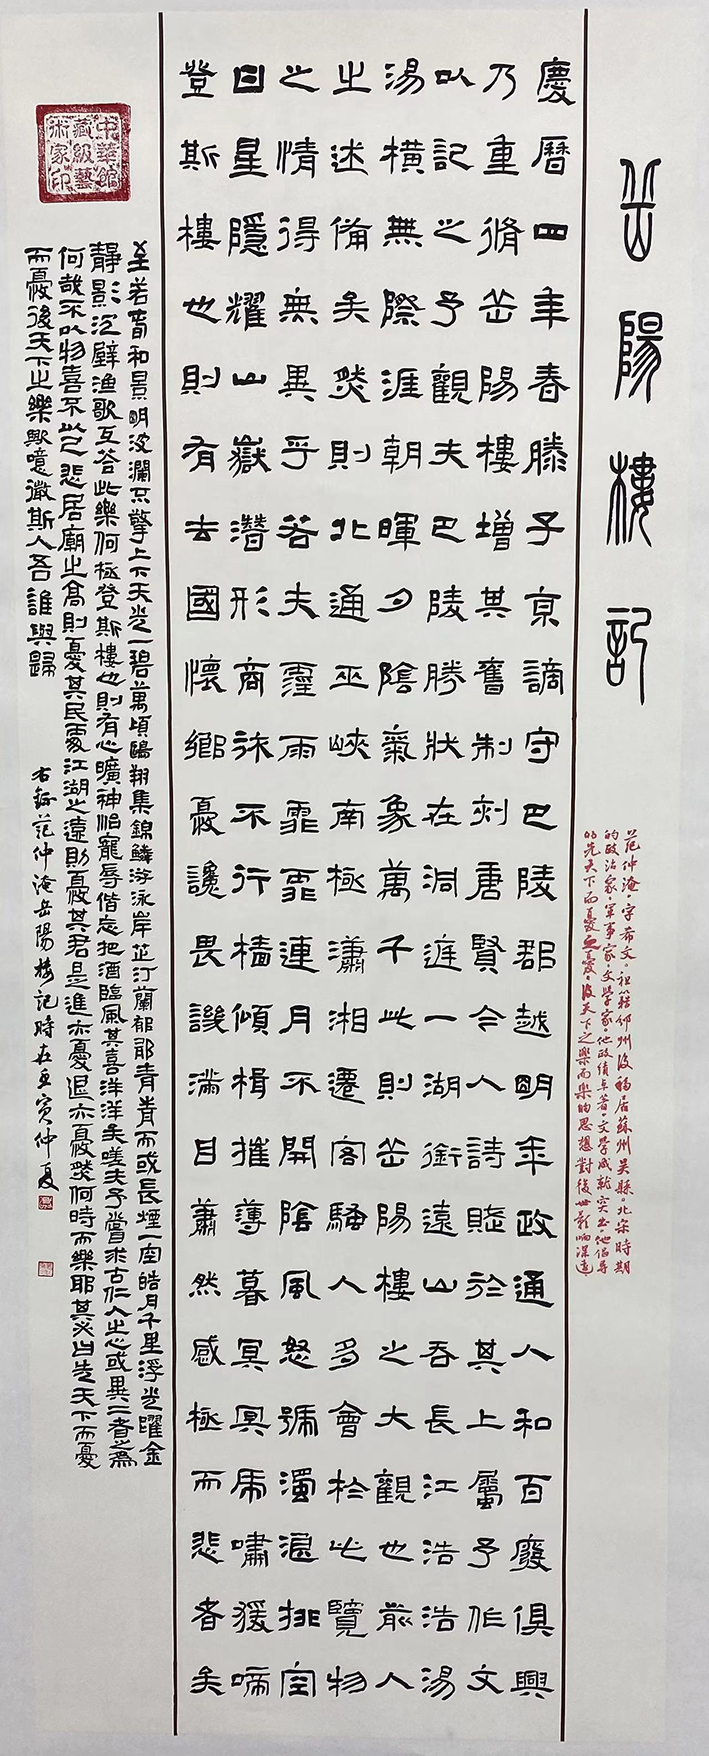 岳陽樓記
范仲淹，字希文。祖籍邠州後移居蘇州吳縣。北宋時期
的政治家，軍事家，文學家。他政績卓著，文學成就突出。他倡導
的先天下而憂而憂，後天下之樂而樂的思想對後世影响深遠
慶曆四年春滕子京謫守巴陵郡越明年政通人和百廢俱興
乃重脩岳陽樓增其舊制刻唐賢今人詩賦於其上屬予作文
以記之予觀夫巴陵勝狀在洞庭一湖銜遠山吞長江浩浩湯
湯橫無際涯朝暉夕陰氣象萬千此則岳陽樓之大觀也前人
之述備矣然則北通巫峽南極瀟湘遷客騷人多會於此覽物
之情得無異乎若夫霪雨霏霏連月不開陰風怒號濁浪排空
日星隱耀山嶽潛形商旅不行檣傾楫摧薄暮冥冥虎嘯猨啼
登斯樓也則有去國懷鄉憂讒畏譏滿目蕭然感極而悲者矣
至若春和景明波瀾不驚上下天光一碧萬頃鷗翔集錦鱗游泳岸芷汀蘭郁郁青青而或長煙一空皓月千里浮光躍金
靜影沉璧漁歌互答此樂何極登斯樓也則有心曠神怡寵辱偕忘把酒臨風其喜洋洋矣嗟夫予嘗求古仁人之心或異二者之為
何哉不以物喜不以己悲居廟之高則憂其民處江湖之遠則憂其君是進亦憂退亦憂然何時而樂耶其必曰先天下而憂
而憂後天下之樂歟噫微斯人吾誰與歸
右錄范仲淹岳陽樓記時在壬寅仲夏
中華館藏級藝術家印